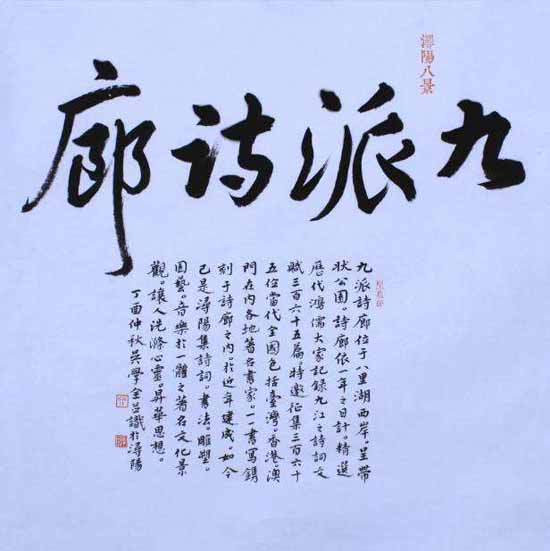 潯陽八景
九派诗廊
九派詩廊位于八里湖西岸。呈帶
狀公園。詩廊依一年之日計。精選
歷代鴻儒大家記錄九江之詩詞文
賦三百六十五篇。特邀征集三百六十
五位當代全國包括臺灣。香港。澳
門在內各地著名書家。一一書寫鐫
刻于詩廊之內。於近年建成。如今
已是潯陽集詩詞。書法。雕塑。
園藝。音樂於一體之著名文化景
觀。讓人洗滌心靈。昇華思想。
丁酉仲秋吳學金並識於潯陽